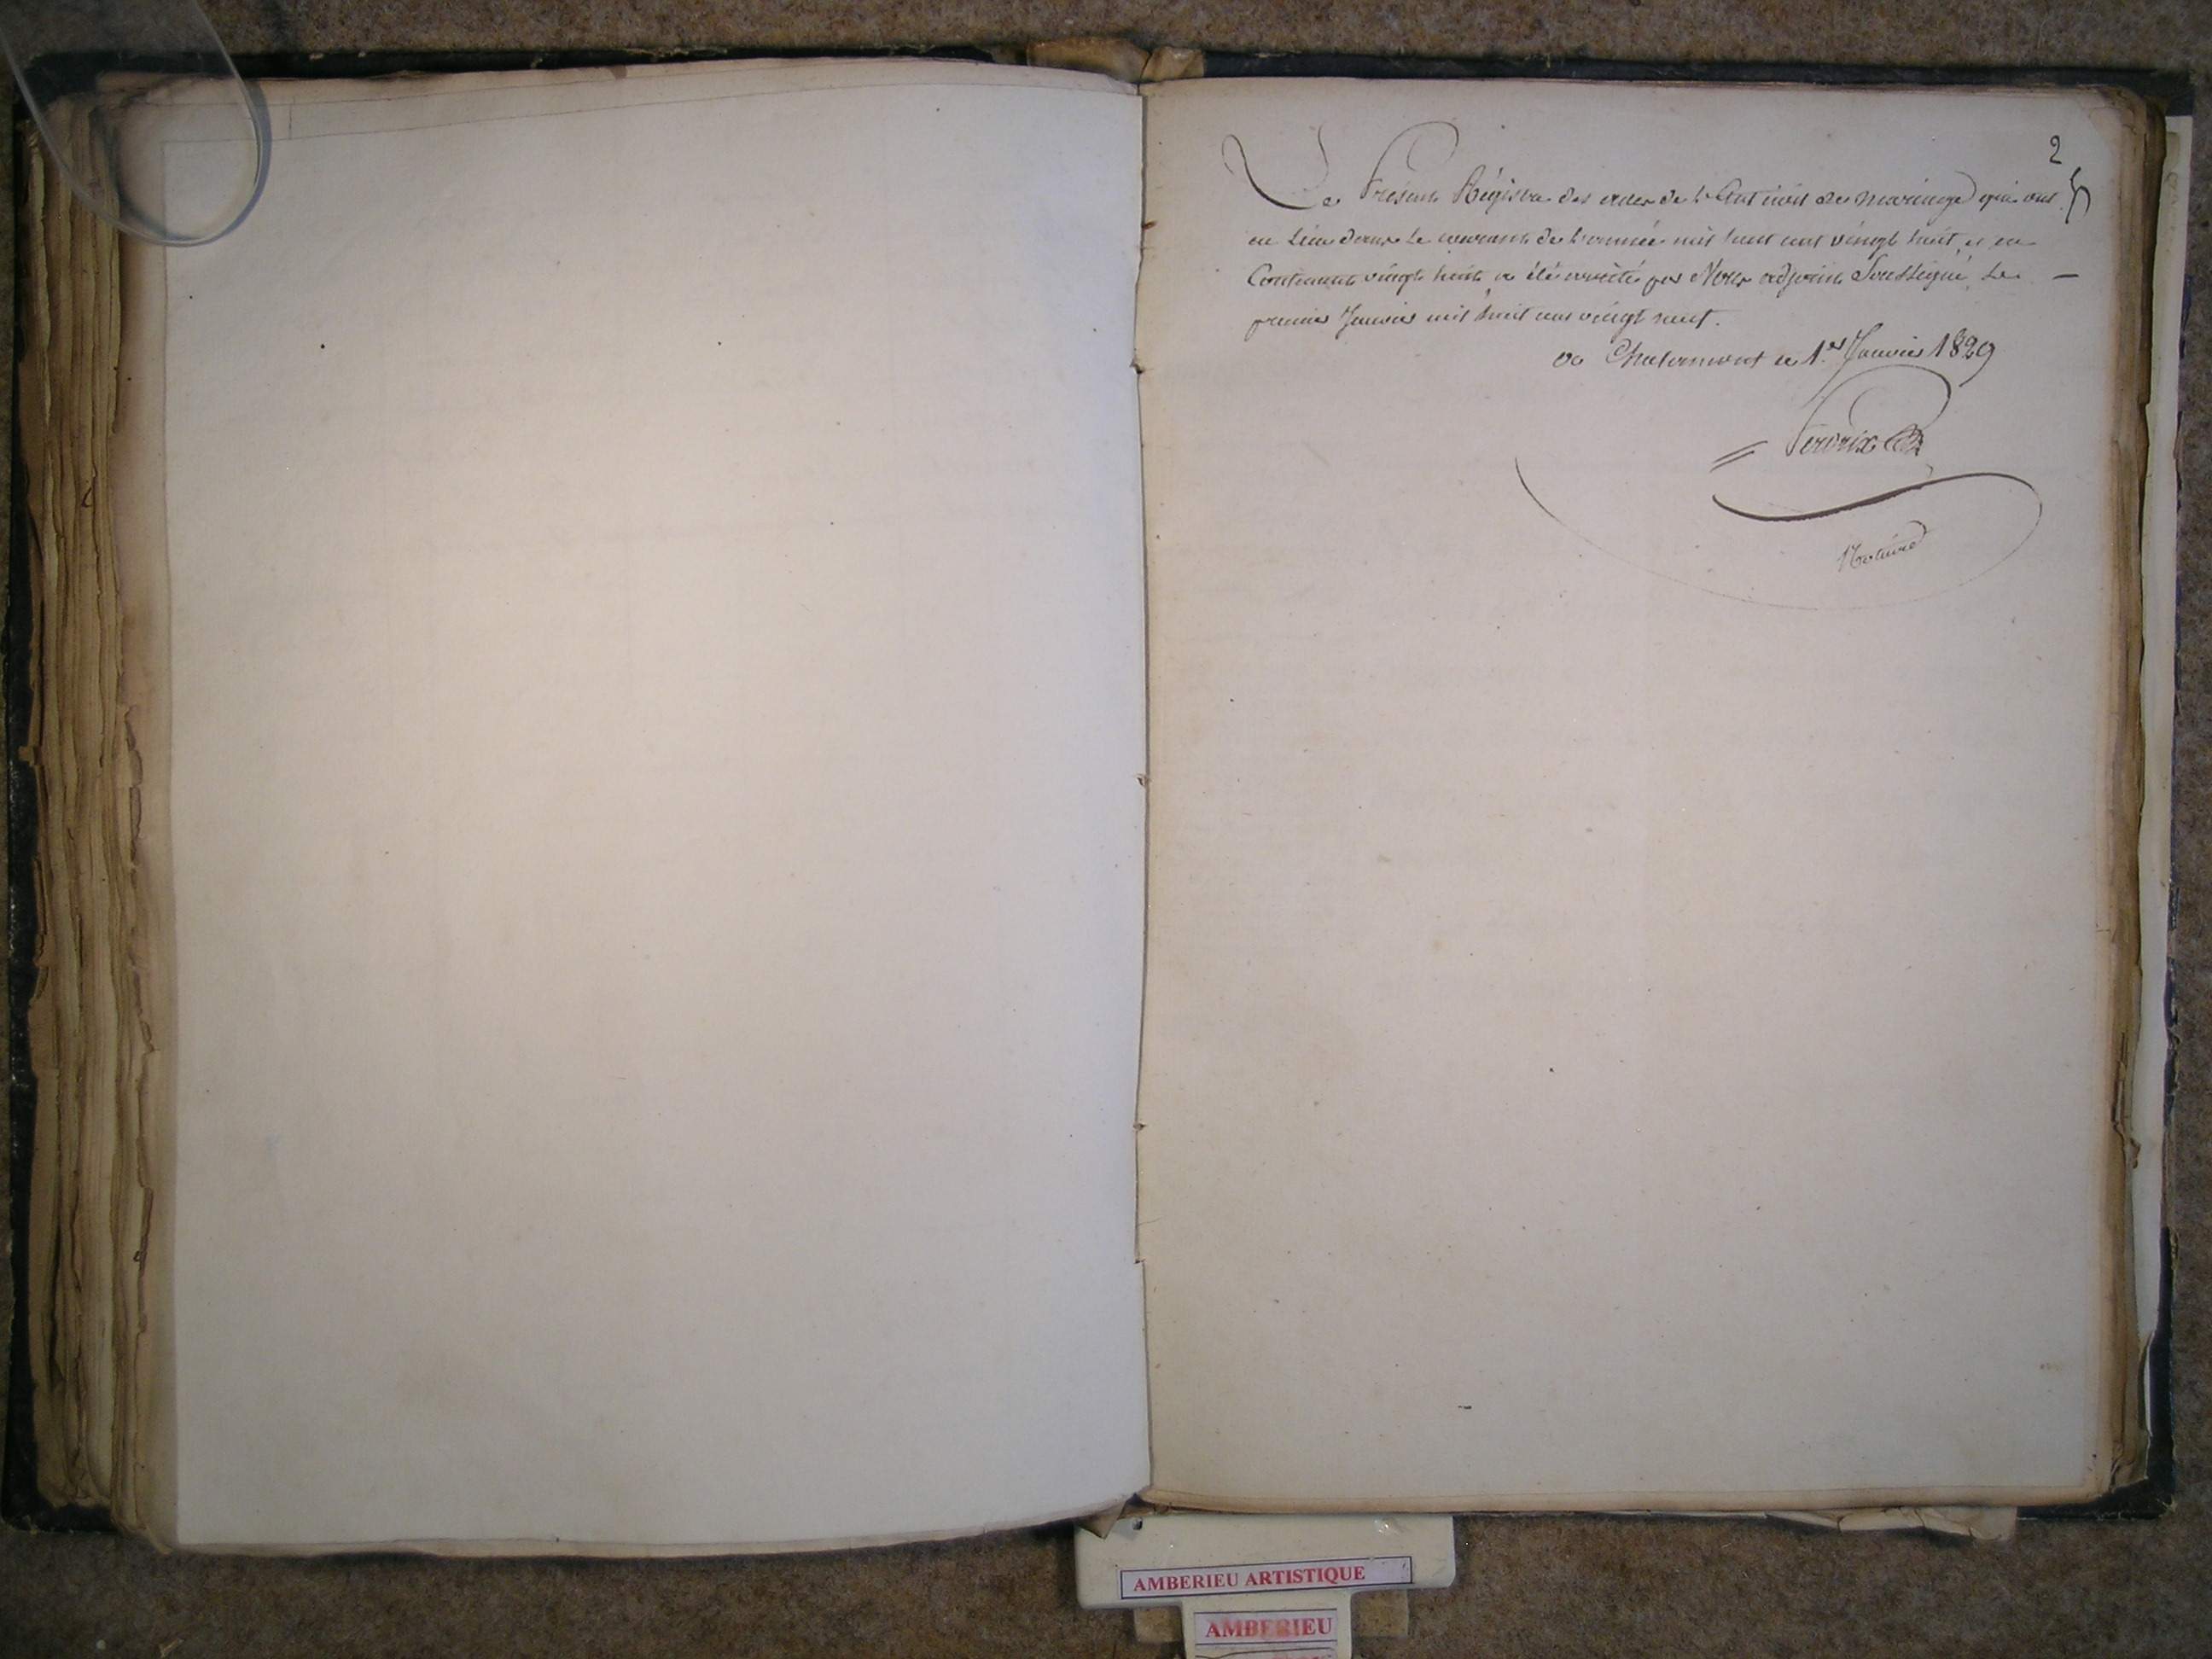 2
Le Présent Régistre des actes de l'État civil de mariage qui ont
eu Lieu dans Le courant de l'année mil huit cent vingt huit et en
Contenant vingt huit, a été arrêté par Nous adjoint Soussigné, Le —
premier Janvier mil huit cent vingt neuf.
le 1.er Janvier 1829
Perdrix
AMBERIEU ARTISTIQUE
AMBERIEU